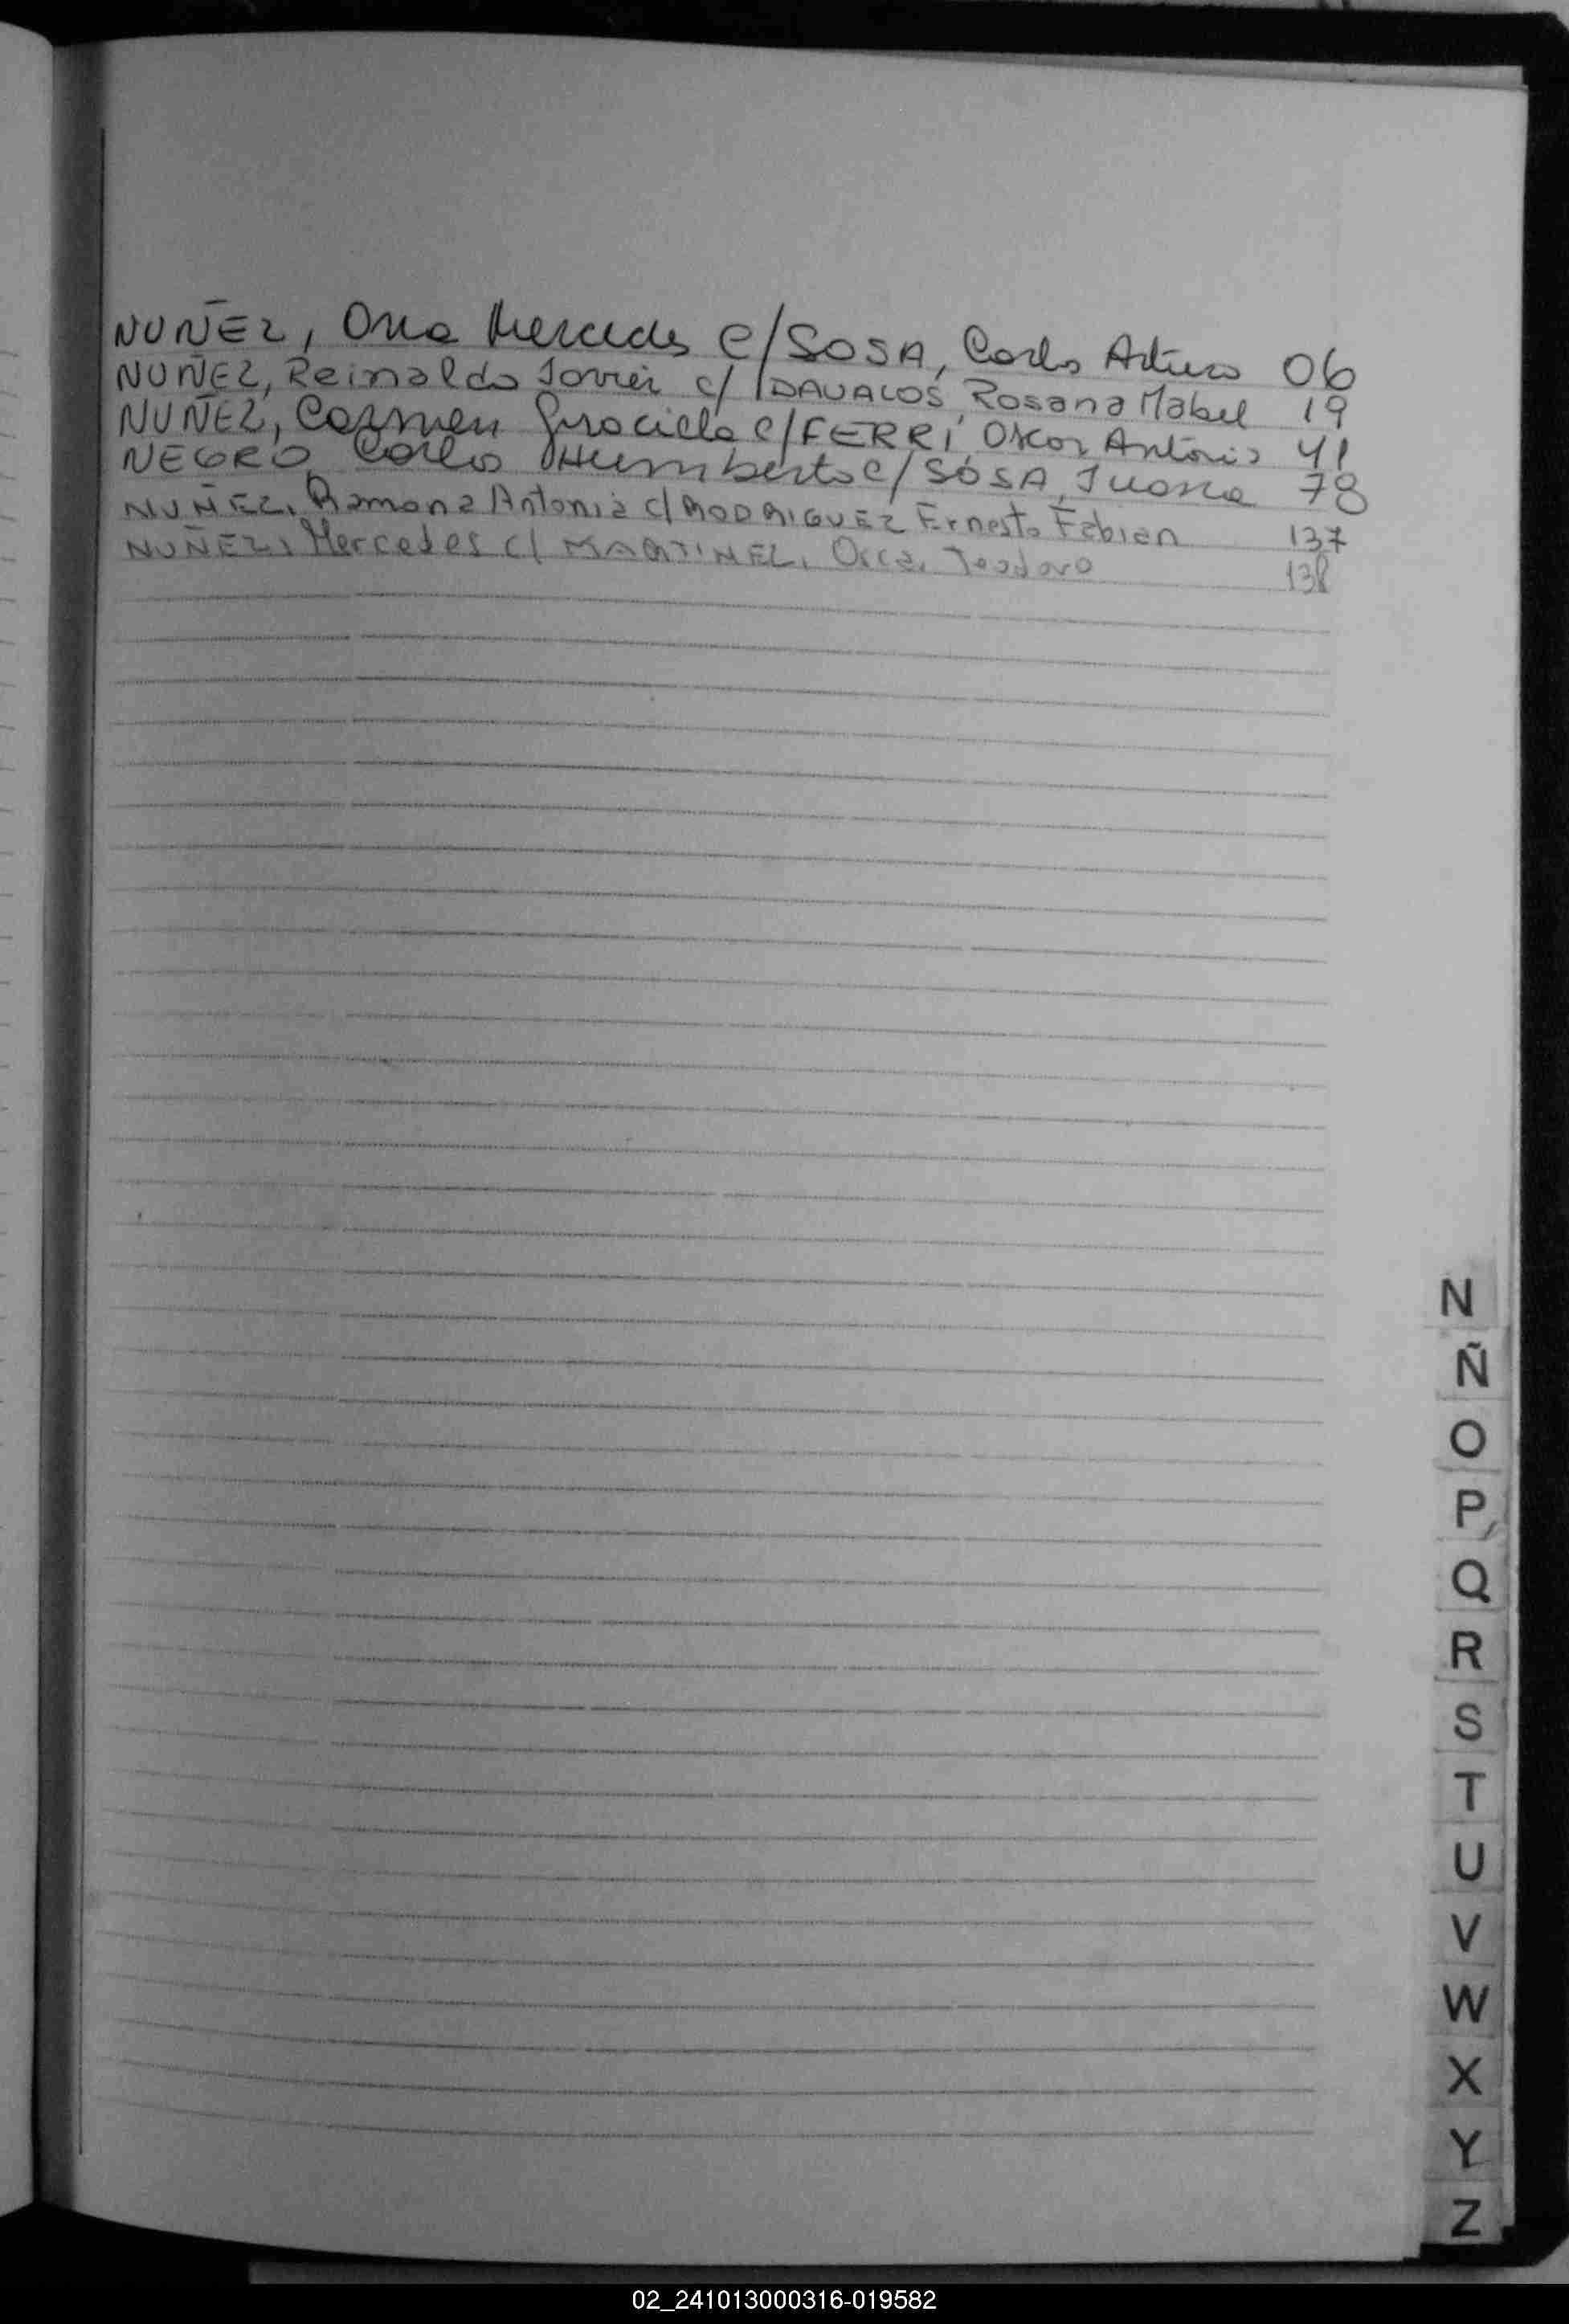 NUÑEZ, Ana Mercedes c/ SOSA, Carlos Arturo 06
NUÑEZ, Reinaldo Javier c/ DAVALOS, Rosana Mabel 19
NUÑEZ, Carmen Graciela c/ FERRI, Oscar Antonio 41
NEGRO, Carlos Humberto c/ SOSA, Juana 78
NUÑEZ, Ramona Antonia c/ RODRIGUEZ Ernesto Fabian 137
NUÑEZ, Mercedes c/ MARTINEZ, Oscar Teodoro 138
N
Ñ
O
P
Q
R
S
T
U
V
W
X
Y
Z
02_241013000316-019582